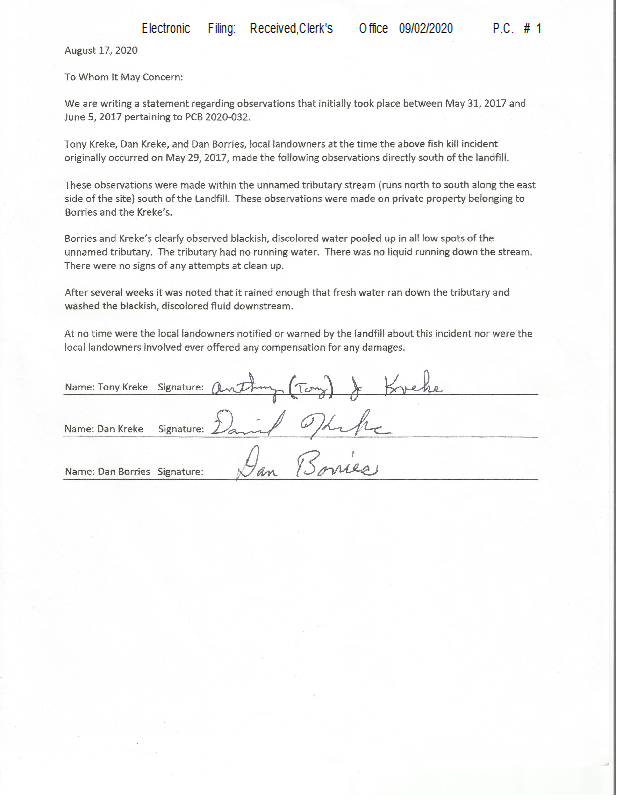 Electronic Filing: Received,Clerk's Office 09/02/2020 P.C. # 1
August 17, 2020
To Whom It May Concern:
We are writing a statement regarding observations that initially took place between May 31, 2017 and
June 5, 2017 pertaining to PCB 2020-032.
Tony Kreke, Dan Kreke, and Dan Borries, local landowners at the time the above fish kill incident
originally occurred on May 29, 2017, made the following observations directly south of the landfill.
These observations were made within the unnamed tributary stream (runs north to south along the east
side of the site) south of the Landfill. These observations were made on private property belonging to
Borries and the Kreke's.
Borries and Kreke's clearly observed blackish, discolored water pooled up in all low spots of the
unnamed tributary. The tributary had no running water. There was no liquid running down the stream.
There were no signs of any attempts at clean up.
After several weeks it was noted that it rained enough that fresh water ran down the tributary and
washed the blackish, discolored fluid downstream.
At no time were the local landowners notified or warned by the landfill about this incident nor were the
local landowners involved ever offered any compensation for any damages.
Name: Tony Kreke Signature: Anthony (Tony) J Kreke
Name: Dan Kreke Signature: Daniel
Name: Dan Borries Signature: Dan Borries